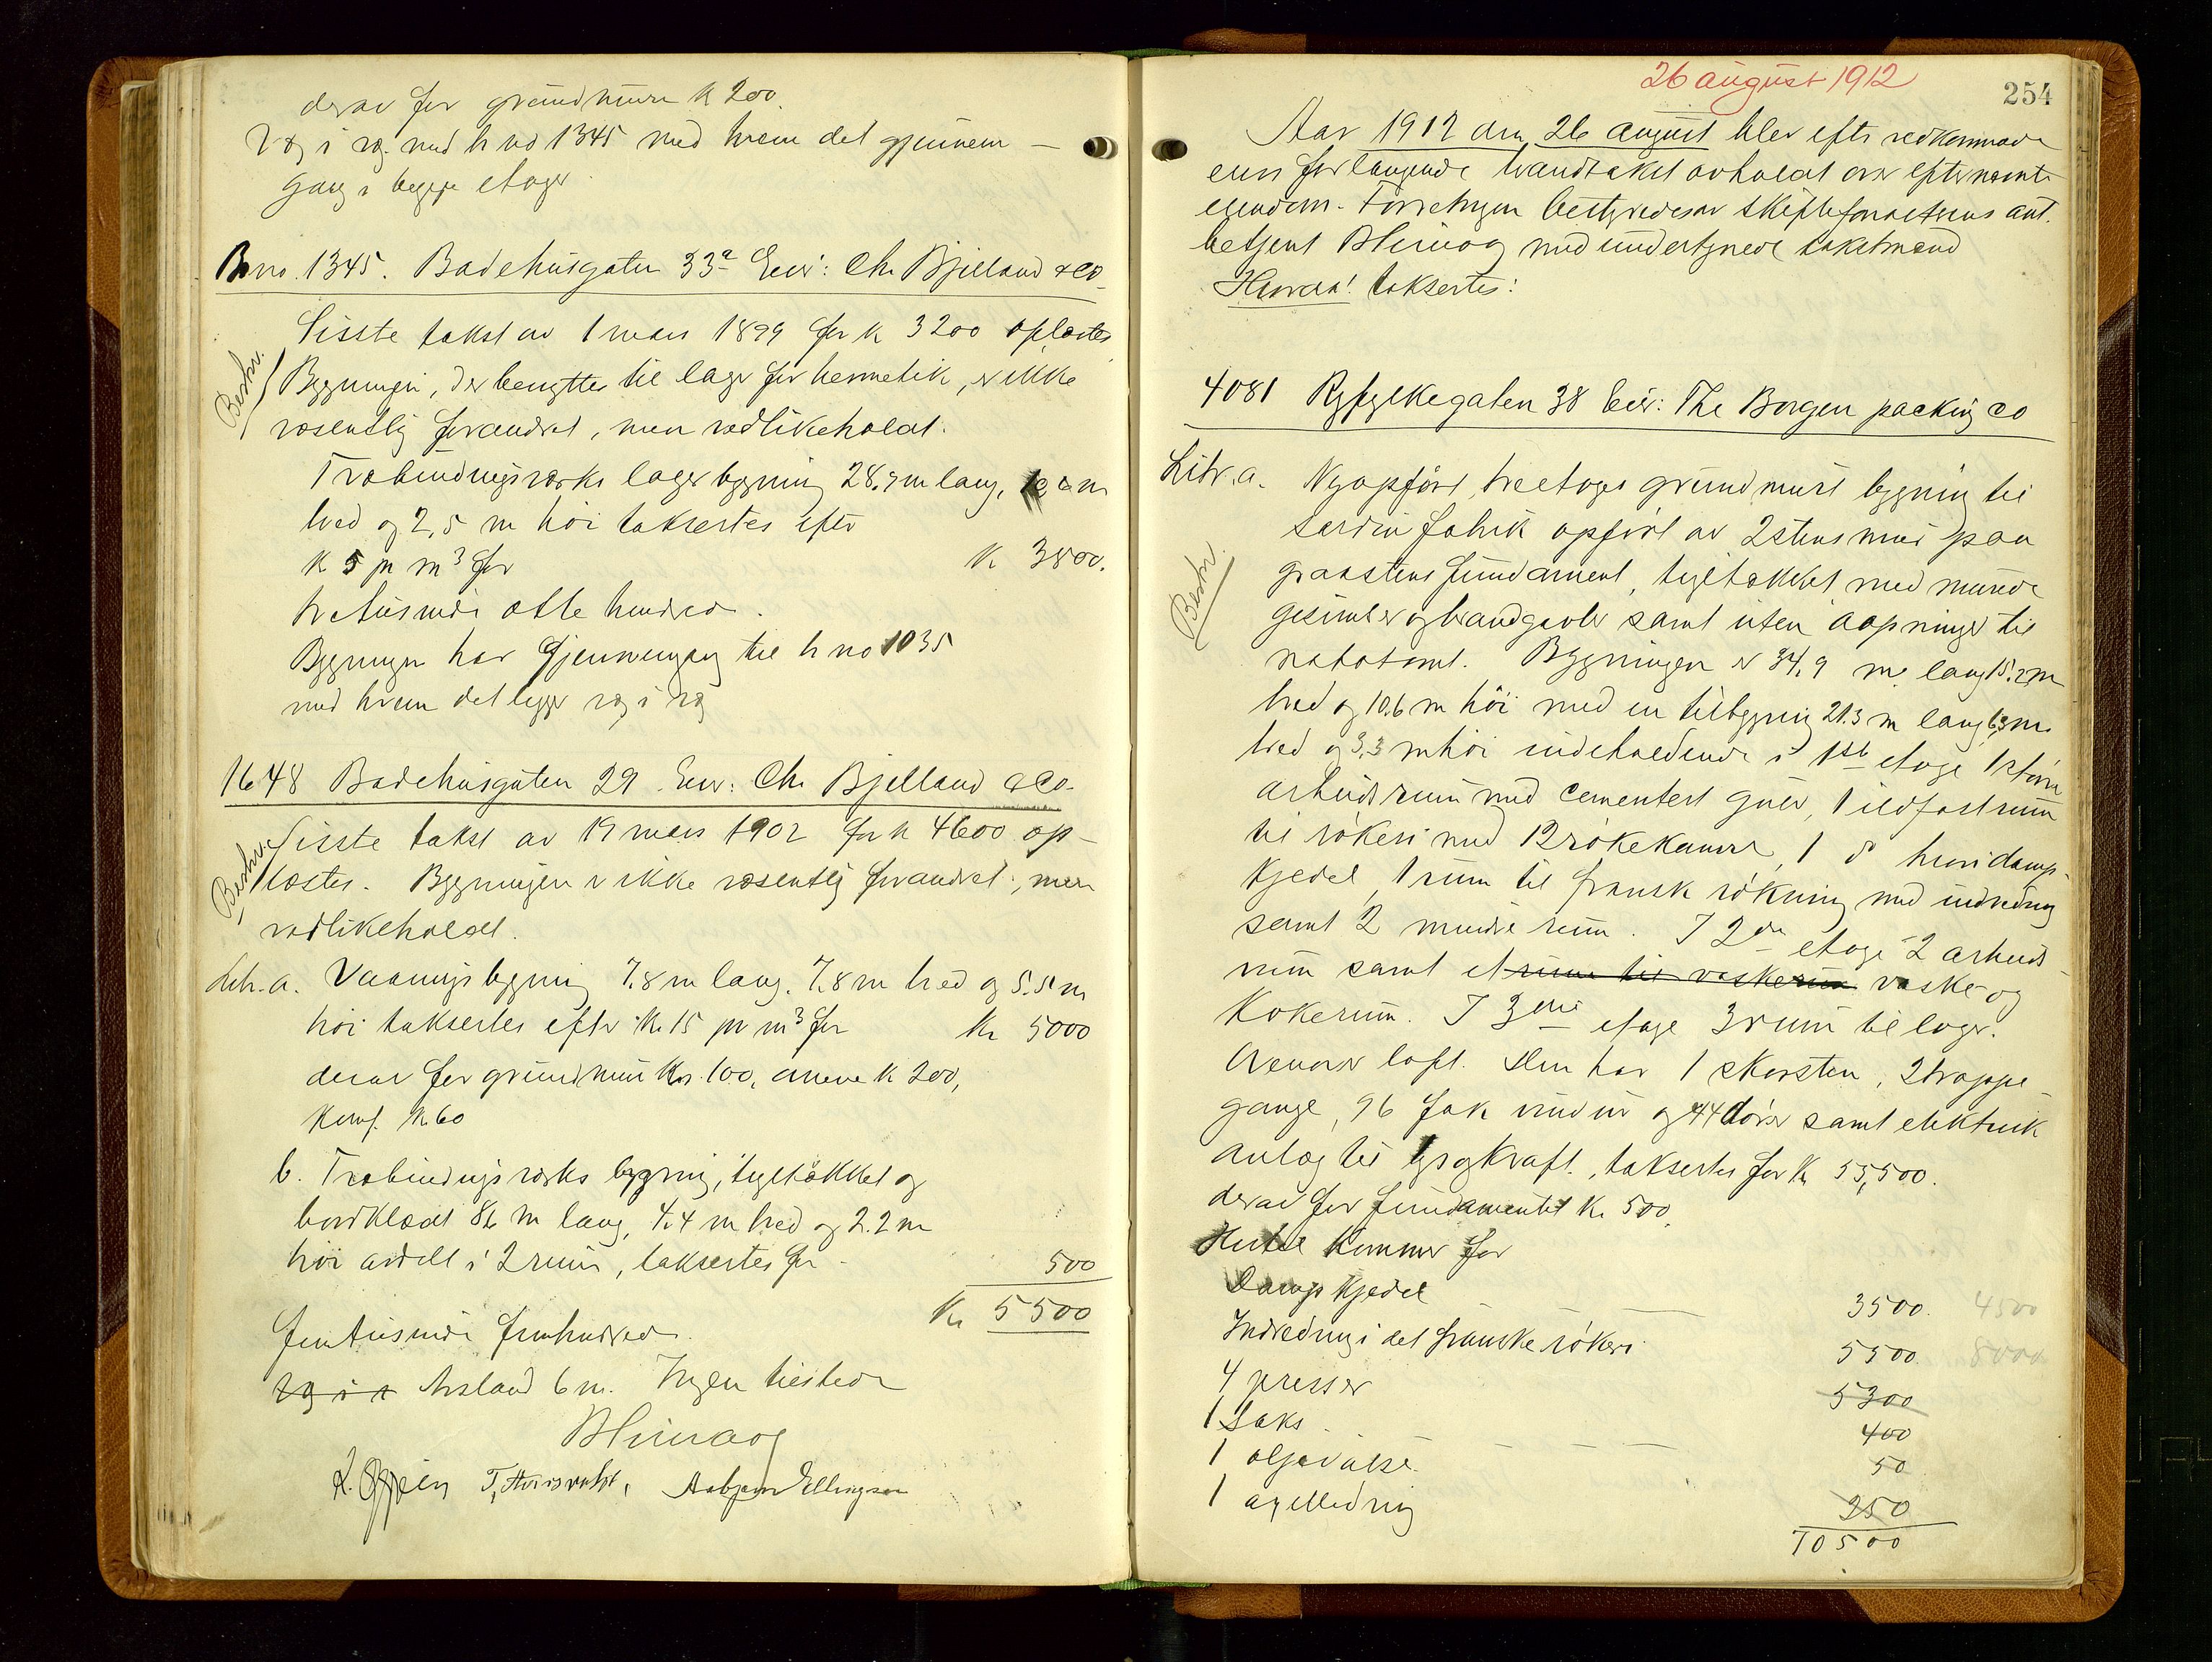 derav for grundmuren k 200.
Væg i væg med h no 1345 med hvem det gjennem-
gang i begge etager.
B no. 1345. Badehusgaten 33a Eier: Chr Bjelland & Co.
Sisste takst av 1 mars 1899 for k 3200 oplæstes
Beskr.
Bygningen, der benyttes til lager for hermetik, er ikke
væsentlig forandret, men vedlikeholdt.
Træbindingsværks lagerbygning 28.9 m lang,
bred og 2,5 m høi taksertes efter
k 5 pr m3 for K 3800.
tretusinde otte hundred.
Bygningen har Gjennemgang til h no 1035
med hvem det ligger væg i væg
1648 Badehusgaten 29. Eier: Chr Bjelland & Co.
Beskr.
Sisste takst av 19 mars 1902 for k 4600 op-
læstes. Bygningen er ikke væsentlig forandret, men
vedlikeholdt.
Litr. a. Vaaningsbygning 7.8 m lang. 7.8 m bred og 5.5 m
høi taksertes efter K. 15 pr m3 for Kr 5000
derav for grundmur Kr. 100, annene k 200,
Komf. K 60
b. Træbindingsværks bygning, tegltækket og
bordklædt 8.2 m lang, 4.4 m bred og 2.2 m
høi avdelt i 2 rum, taksertes for 500
Kr 5500
femtusinde femhundred.
Væg i v Avstand 6 m. Ingen tilstede
BHimaog
Aabjørn Ellingsen
26 august 1912
254
Aar 1912 den 26 august blev efter vedkommende
eiers forlangende brandtakst avholdt over efternævnte
eiendom. Forretningen bestyredes av skifteforvalterens aut.
betjent BHimaog med undertegnede takstmænd
Hvorda! taksertes:
4081 Ryfylkegaten 38 Eier: The Borgen packing co
Litr. a. Nyopført, treetages grundmurt bygning til
Beskr.
sardinfabrik opført av 2stens mur paa
graastens fundament, tegltækket med murede
gesimser og brandgavler samt uten aapninger til
nabotomt. Bygningen er 34,9 m lang 15.2 m
bred og 10.6 m høi med en tilbygning 21.3 m lang 6.3 m
bred og 3.3 m høi indeholdende i 1ste etage 1 stort
arbeidsrum med cementert gulv, 1 ildfast rum
til røkeri med 12 røkekamre, 1 do hvori damp-
kjedel, 1 rum til fransk røkning med indredning
samt 2 mindre rum. I 2den etage 2 arbeids-
rum samt et rum til vaskerum vaske- og
kokerum. I 3die etage 3 rum til lager.
Ovenover loft. Den har 1 skorsten, 2 trappe-
gange, 96 fak vinduer og 44 dører samt elektrisk
anlæg til lys og kraft, taksertes for K 55,500.
derav for fundamentet K. 500.
Hertil kommer for
Dampkjedel 3500. 4500
Indredning i det franske røkeri 5500. 8000
4 presser 5300
1 saks 400
1 oljevalse 50
1 axelledning 250
70500